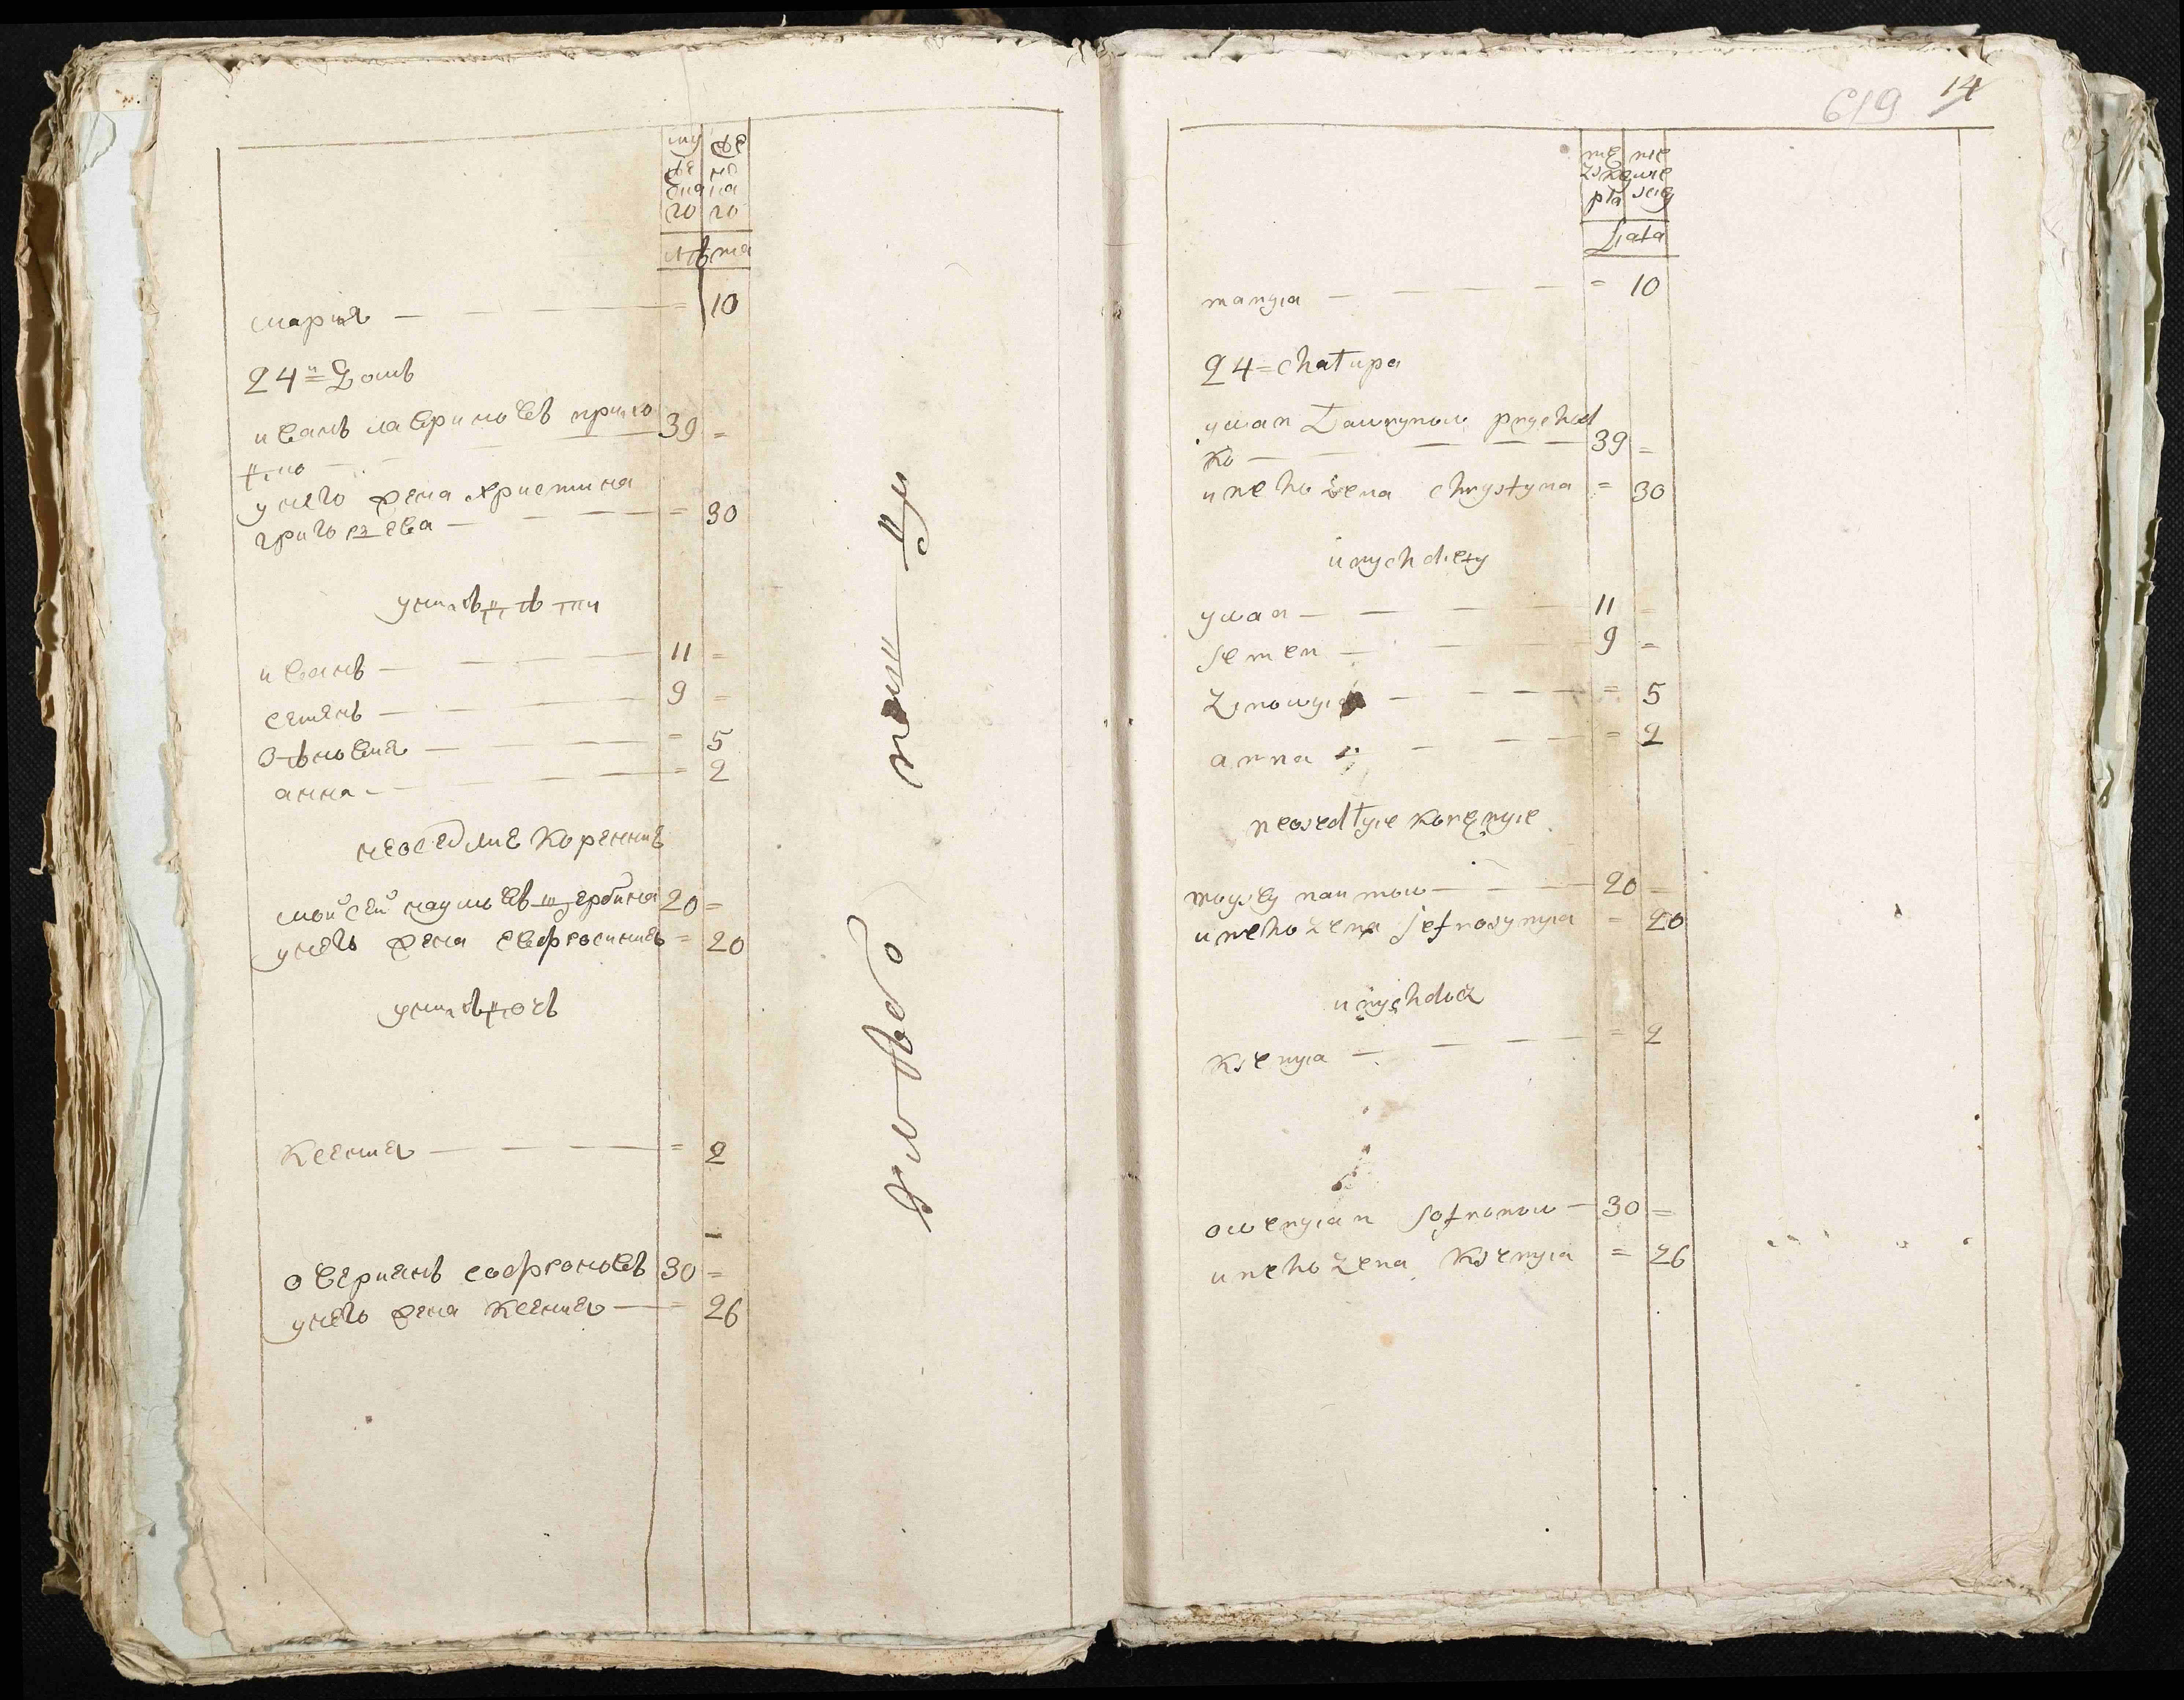 му же
же нс
ска ка
го го
лѣта
марыя — = 10
24й домъ
иванъ лавриновъ прихо
дко — 39 =
у него жена христина
григорева — = 30
у нихъ дѣти
иванъ — 11 =
семенъ — 9 =
зѣновия — = 5
анна — = 2
неоседлие коренние
мойсей наумовъ щербина 20 =
у него жена евфросиния = 20
у нихъ дочь
Ксения — = 2
оверианъ софроновъ 30 =
у него жена Ксения — = 26
14
619
mę nie
zskę wie
pła sciey
Liata
maryia — = 10
24 = chałupa
ywan Ławrynow prychod
ko — 39 =
u neho żena chrystyna = 30
u nych diety
ywan — 11 =
semen — 9 =
Zinowyia — = 5
anna — = 2
neosedłyie koręnyie
moysey naumow — 20 =
u neho żena jefrosynyia = 20
u nych docz
Ksenyia — = 2
oweryian sofronow — 30 =
u neho żena Ksenyia = 26